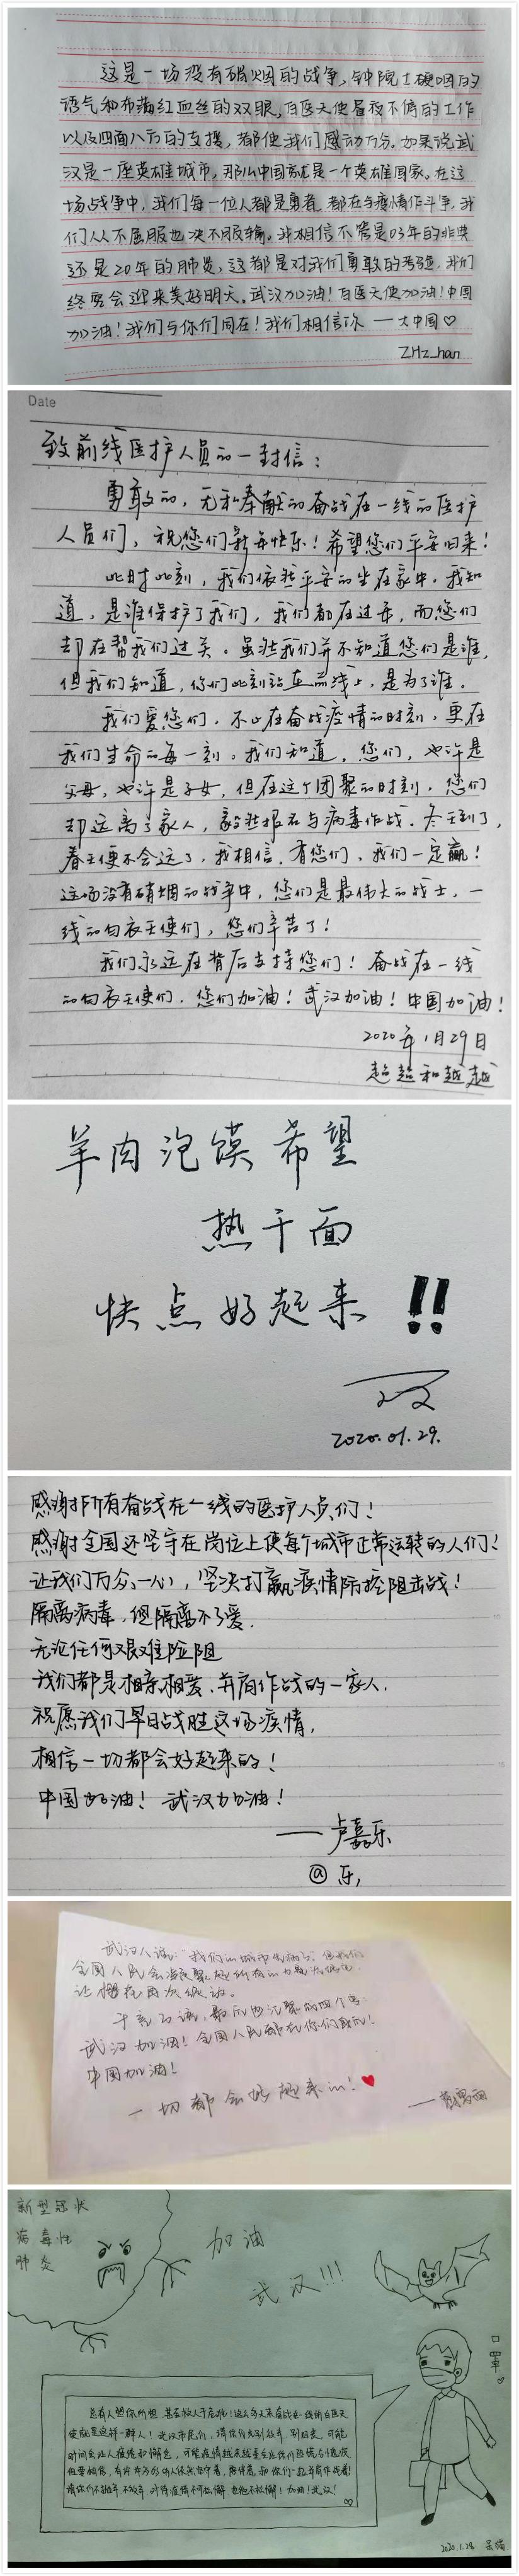 这是一场没有硝烟的战争,钟院士哽咽的
语气和布满红血丝的双眼,白医天使昼夜不停的工作
以及四面八方的支援,都使我们感动万分。如果说武
汉是一座英雄城市,那么中国就是一个英雄国家。在这
场战争中,我们每一位人都是勇者,都在与疫情作斗争,我
们从不屈服也决不服输。我相信不管是03年的非典
还是20年的肺炎,这都是对我们勇敢的考验,我们
终要会迎来美好明天。武汉加油!白医天使加油!中国
加油!我们与你们同在!我们相信你 — 大中国♡
ZHz_han
Date
致前线医护人员的一封信:
勇敢的,无私奉献的奋战在一线的医护
人员们,祝您们新年快乐!希望您们平安归来!
此时此刻,我们依然平安的坐在家中,我知
道,是谁保护了我们,我们都在过年,而您们
却在帮我们过关。虽然我们并不知道您们是谁,
但我们知道,你们此刻站在前线上,是为了谁。
我们爱您们,不止在奋战疫情的时刻,更在
我们生命的每一刻。我们知道,您们,也许是
父母,也许是子女,但在这个团聚的时刻,您们
却远离了家人,毅然报名与病毒作战。冬天到了,
春天便不会远了,我相信,有您们,我们一定赢!
这场没有硝烟的战争中,您们是最伟大的战士,一
线的白衣天使们,您们辛苦了!
我们永远在背后支持您们!奋战在一线
的白衣天使们,您们加油!武汉加油!中国加油!
2020年1月29日
超超和越越
羊肉泡馍希望
热干面
快点好起来!!
2020.01.29.
感谢所有奋战在一线的医护人员们!
感谢全国还坚守在岗位上使每个城市正常运转的人们!
让我们万众一心,坚决打赢疫情防控阻击战!
隔离病毒,但隔离不了爱.
无论任何艰难险阻
我们都是相亲相爱、并肩作战的一家人.
祝愿我们早日战胜这场疫情,
相信一切都会好起来的!
中国加油!武汉加油!
— 卢嘉乐
@ 乐,
武汉人说:"我们的城市生病了,但我们
全国人民会凝聚起所有的力量
让樱花再次绽放。
千言万语,最后也汇聚成四个字:
武汉加油!全国人民都在你们身后!
中国加油!
一切都会好起来的!
新型冠状
病毒性
肺炎
加油
武汉!!!
口罩
总有人想你所想,甚至救人于危难!这么多天来奋战在一线的白医天
使就是这样一群人!武汉市民们,请你们先别放弃,别灰心,可能
时间会让人疲倦和懈怠,可能疫情越来越重会让你们恐慌与愤慨
但要相信,有许许多多的人
请你们不抛弃不放弃,对待疫情不可松懈,也绝不放懈!加油!武汉!
2020.1.28